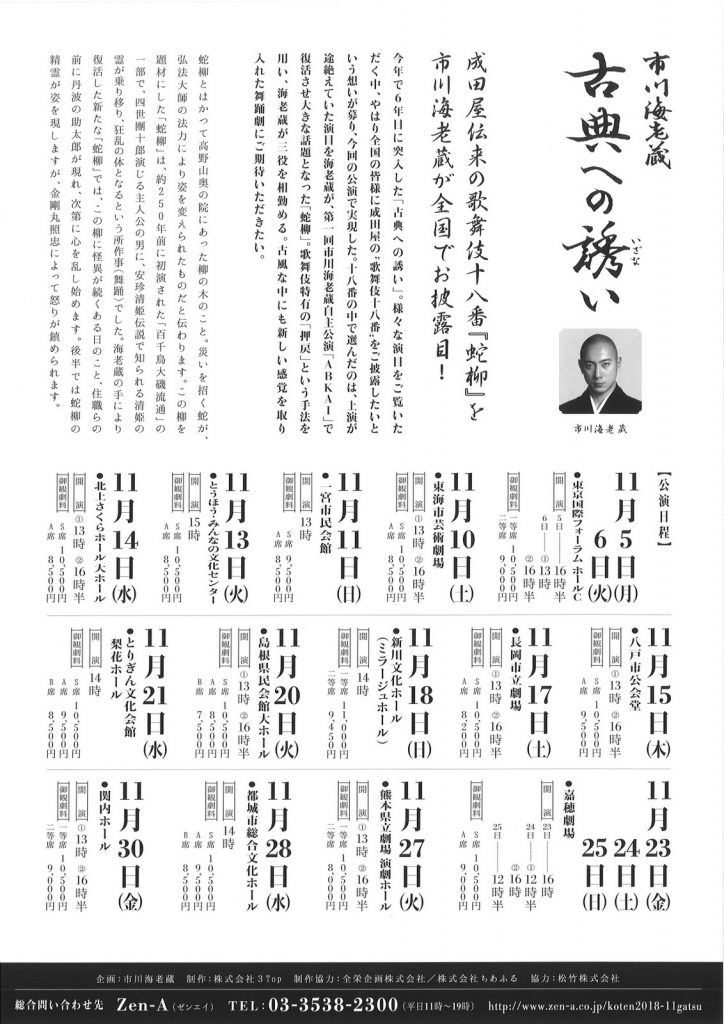 市川海老蔵
古典への誘い
いざな
市川海老蔵
成田屋伝来の歌舞伎十八番『蛇柳』を
市川海老蔵が全国でお披露目！
今年で6年目に突入した「古典への誘い」。様々な演目をご覧いた
だく中、やはり全国の皆様に成田屋の“歌舞伎十八番”をご披露したいと
いう想いが募り、今回の公演で実現した。十八番の中で選んだのは、上演が
途絶えていた演目を海老蔵が、第一回市川海老蔵自主公演「ABKAI」で
復活させ大きな話題となった「蛇柳」。歌舞伎特有の「押戻」という手法を
用い、海老蔵が三役を相勤める。古風な中にも新しい感覚を取り
入れた舞踊劇にご期待いただきたい。
蛇柳とはかつて高野山奥の院にあった柳の木のこと。災いを招く蛇が、
弘法大師の法力により姿を変えられたものだと伝わります。この柳を
題材にした「蛇柳」は、約250年前に初演された「百千鳥大磯流通」の
一部で、四世團十郎演じる主人公の男に、安珍清姫伝説で知られる清姫の
霊が乗り移り、狂乱の体となるという所作事（舞踊）でした。海老蔵の手により
復活した新たな「蛇柳」では、この柳に怪異が続くある日のこと、住職らの
前に丹波の助太郎が現れ、次第に心を乱し始めます。後半では蛇柳の
精霊が姿を現しますが、金剛丸照忠によって怒りが鎮められます。
【公演日程】
11月5日（月）
6日（火）
●東京国際フォーラム ホールC
開演 5日――16時
6日――①13時
②16時半
御観劇料 一等席 10,500円
二等席 9,000円
11月10日（土）
●東海市芸術劇場
開演 ①13時 ②16時半
御観劇料 S席 10,500円
A席 8,500円
11月11日（日）
●一宮市民会館
開演 13時
御観劇料 S席 9,500円
A席 8,500円
11月13日（火）
●とうほう・みんなの文化センター
開演 15時
御観劇料 S席 10,500円
A席 8,500円
11月14日（水）
●北上さくらホール 大ホール
開演 ①13時 ②16時半
御観劇料 S席 10,500円
A席 8,500円
11月15日（木）
●八戸市公会堂
開演 ①13時 ②16時半
御観劇料 S席 10,500円
A席 9,500円
11月17日（土）
●長岡市立劇場
開演 ①13時 ②16時半
御観劇料 S席 10,500円
A席 8,200円
11月18日（日）
●新川文化ホール
（ミラージュホール）
開演 14時
御観劇料 一等席 11,000円
二等席 9,450円
11月20日（火）
●島根県民会館 大ホール
開演 ①13時 ②16時半
御観劇料 S席 10,500円
A席 8,500円
B席 7,500円
11月21日（水）
●とりぎん文化会館
梨花ホール
開演 14時
御観劇料 S席 10,500円
A席 9,500円
B席 8,500円
11月23日（金）
24日（土）
25日（日）
●嘉穂劇場
開演 23日 16時
24日――①12時
②16時
25日――12時半
御観劇料 S席 10,500円
A席 9,500円
11月27日（火）
●熊本県立劇場 演劇ホール
開演 ①13時 ②16時半
御観劇料 一等席 10,500円
二等席 8,500円
11月28日（水）
●都城市総合文化ホール
開演 14時
御観劇料 S席 10,500円
A席 9,500円
B席 8,500円
11月30日（金）
●関内ホール
開演 ①13時 ②16時半
御観劇料 一等席 10,500円
二等席 9,000円
企画：市川海老蔵 制作：株式会社37op 制作協力：全栄企画株式会社／株式会社ちあふる 協力：松竹株式会社
総合問い合わせ先 Zen-A（ゼンエイ） TEL：03-3538-2300（平日11時～19時） http://www.zen-a.co.jp/koten2018-11gatsu